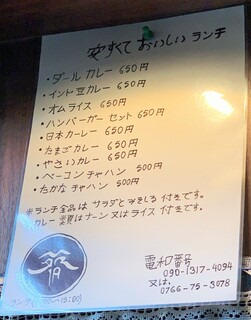 安すくて おいしい ランチ
・ダール カレー 650円
・インド豆カレー 650円
・オムライス 650円
・ハンバーガー セット 650円
・日本カーレー 650円
・たまごカレー 650円
・やさいカレー 650円
・ベーコンチャハン 500円
・たかなチャハン 500円
※ランチ全品は サラダとみそしる 付きです。
カレー 類はナーン又はライス 付きです。
電和番号
090-1317-4094
又は、
0766-75-3078